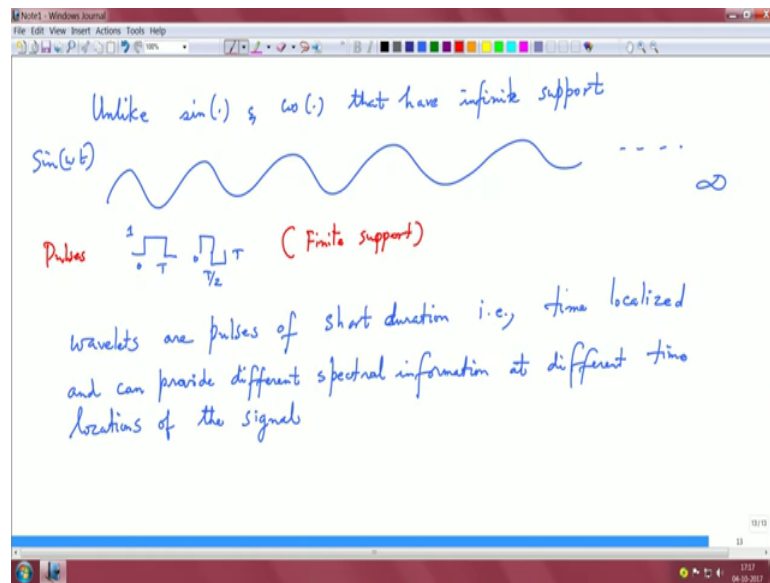 Note1 - Windows Journal
File Edit View Insert Actions Tools Help
100%
Unlike sin(.) & cos(.) that have infinite support
Sin(ωt)
∞
Pulses 1 0 T 0 T/2 T (Finite support)
wavelets are pulses of short duration i.e., time localized
and can provide different spectral information at different time
locations of the signal
13/13
13
17:17
04-10-2017